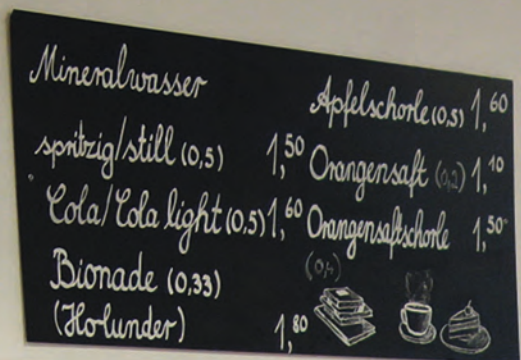 Mineralwasser
spritzig/still (0,5) 1,50
Cola/Cola light (0,5) 1,60
Bionade (0,33)
(Holunder) 1,80
Apfelschorle (0,5) 1,60
Orangensaft (0,2) 1,10
Orangensaftschorle 1,50
(0,4)